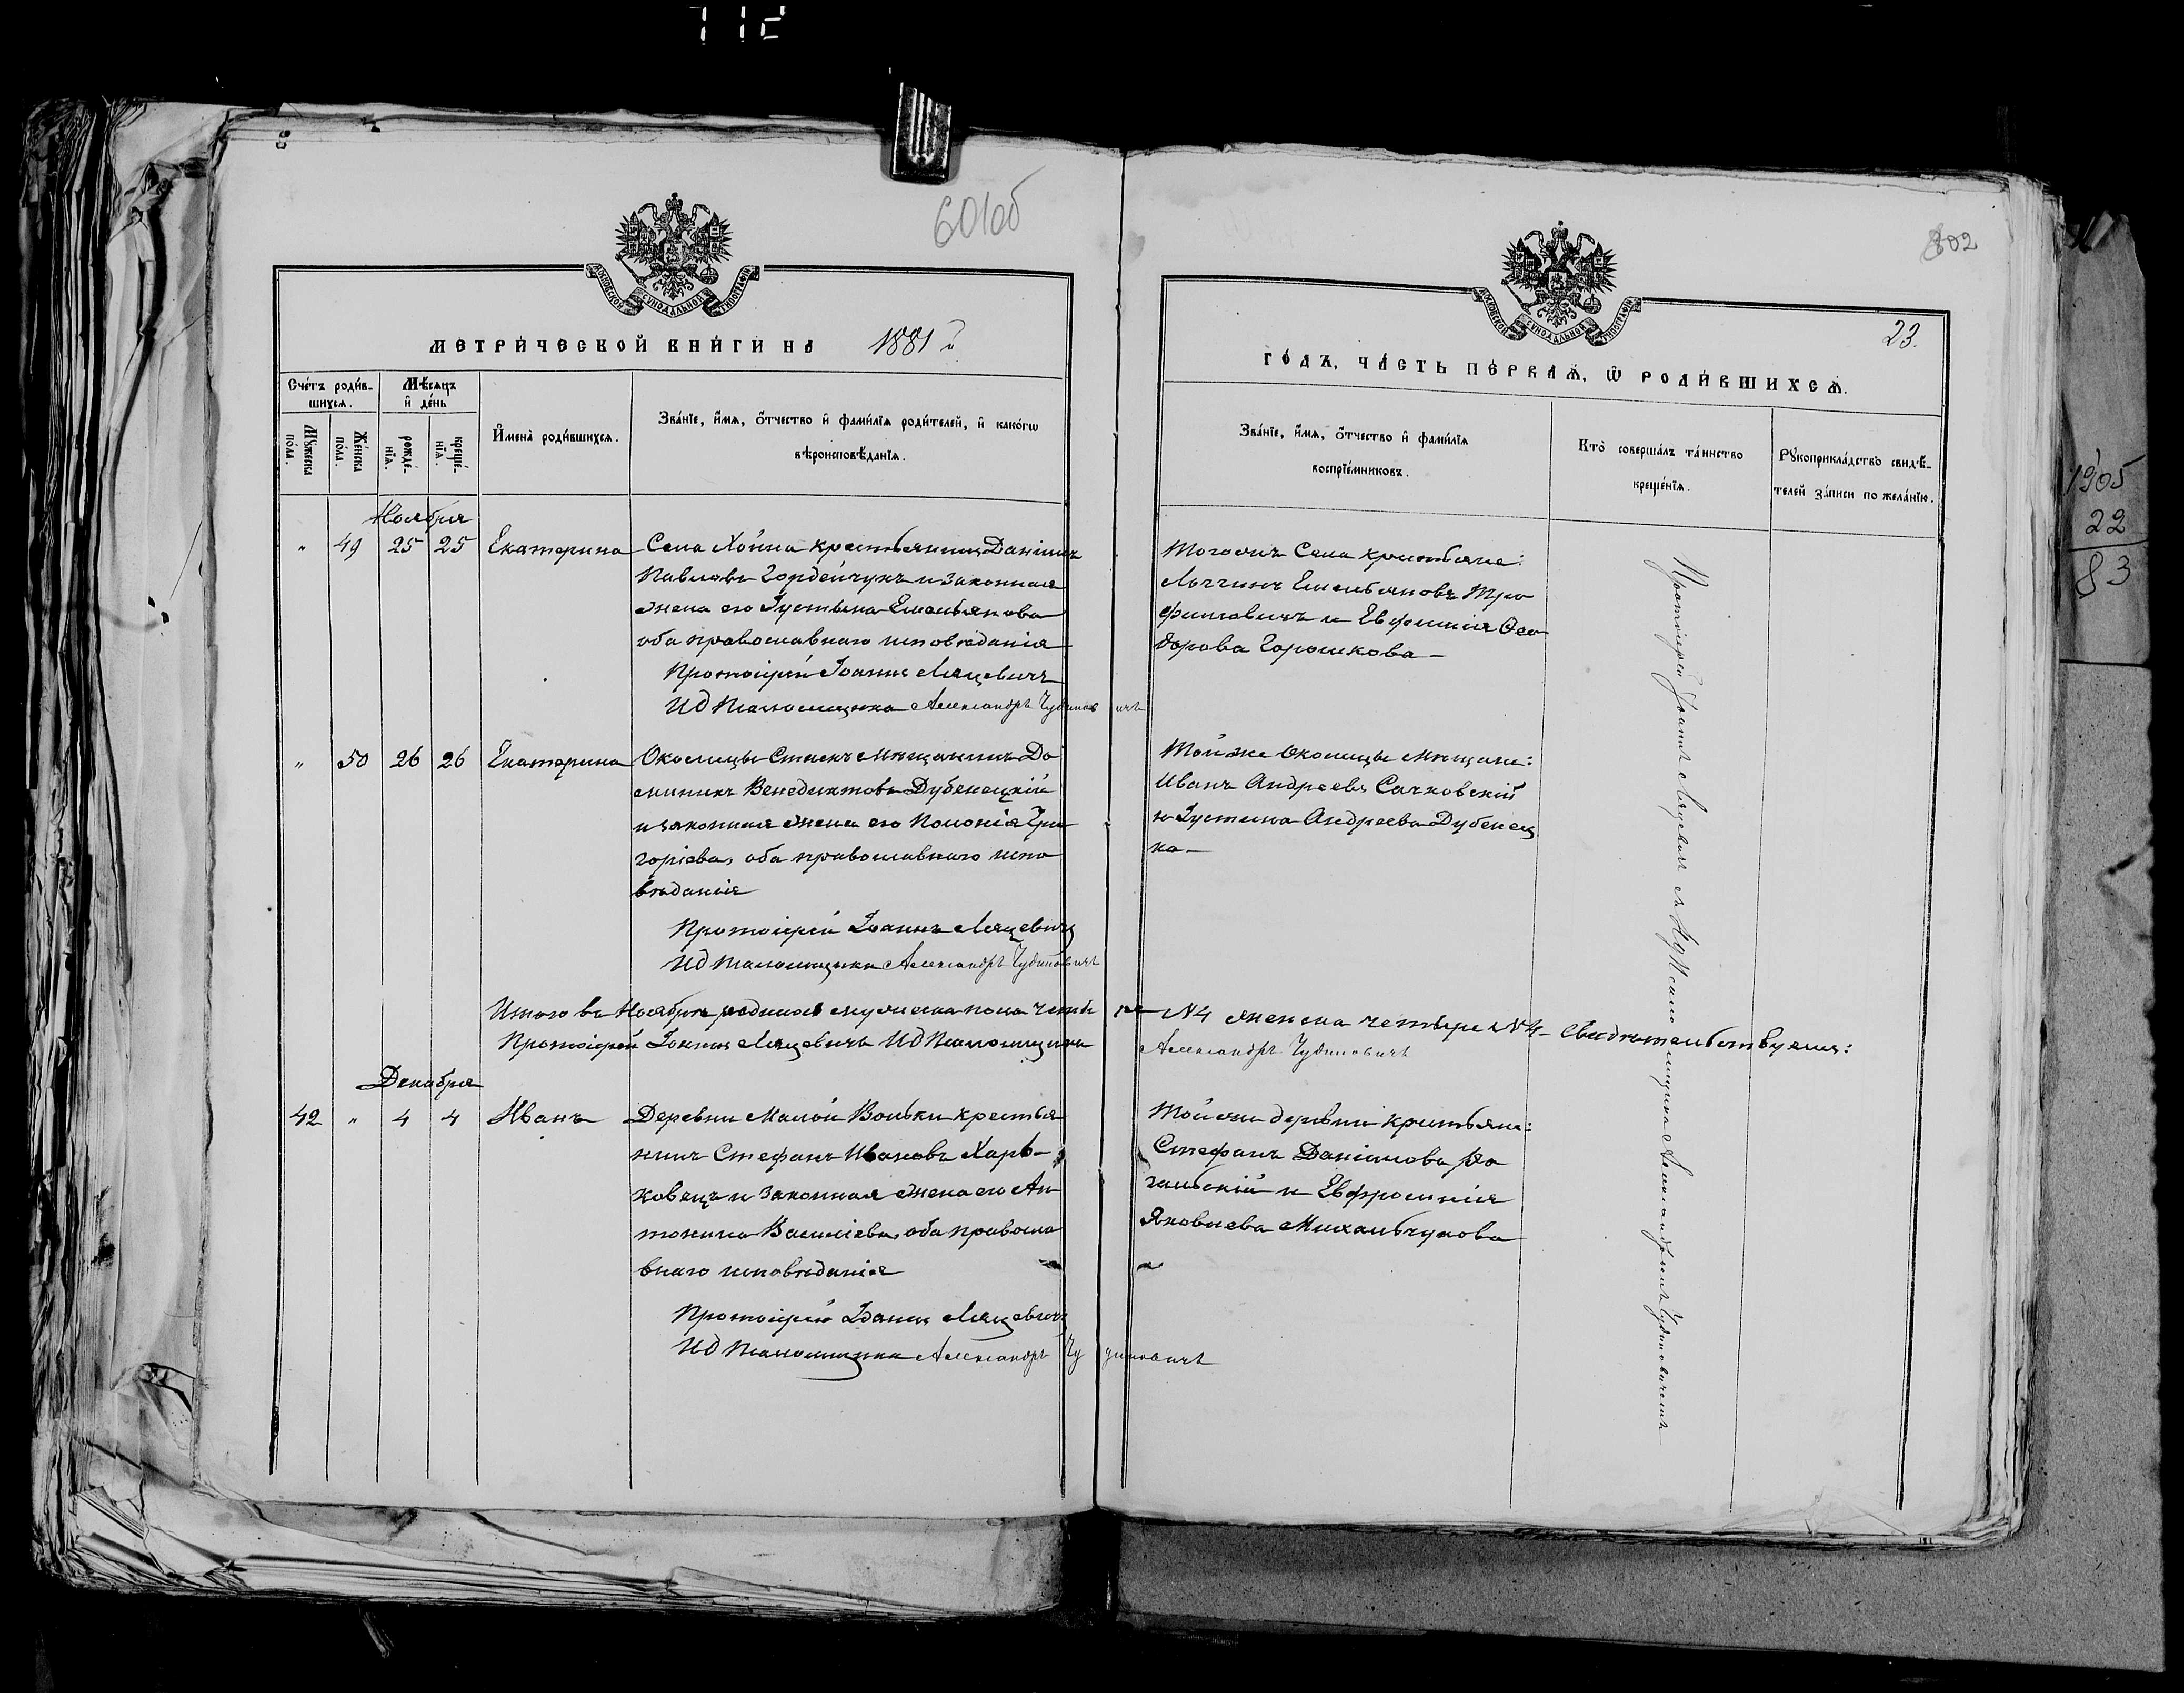 712
601об
802
МЕТРИ́ЧЕСКОЙ КНИ́ГИ НА 1881 й
23.
ГО́ДЪ, ЧА́СТЬ ПЕ́РВАЯ, Ѡ РОДИ́ВШИХСЯ.
МОСКОВСКОЙ СѴНОДАЛЬНОЙ ТИПОГРАФІИ
МОСКОВСКОЙ СѴНОДАЛЬНОЙ ТИПОГРАФІИ
Сче́тъ роди́в-
шихся.
Мꙋжеска
по́ла.
Же́нска
по́ла.
Мѣ́сяцъ
и҆ де́нь
рожде́-
нїя.
креще́-
нїя.
И҆мена̀ роди́вшихся.
Зва́нїе, и҆́мя, ѻ҆́тчество и҆ фами́лїя роди́телей, и҆ како́гѡ
вѣроисповѣ́данїя.
Зва́нїе, и҆́мя, ѻ҆́тчество и҆ фами́лїя
воспрїе́мниковъ.
Кто̀ соверша́лъ та́инство
креще́нїя.
Рꙋкоприкла́дство свидѣ́-
телей за́писи по жела́нїю.
Ноября
" 49 25 25 Екатерина
Села Хойна крестьянинъ Даніилъ
Павловъ Гордейчукъ и законная
жена его Іустина Емельянова
оба православнаго исповѣданія
Протоіерей Іоаннъ Ляцевичъ
ИД Псаломщика Александръ Чудиновичъ
Тогожъ Села крестьяне:
Логгинъ Емельяновъ Тро
фимовичъ и Евфимія Ѳео
дорова Горошкова—
" 50 26 26 Екатерина
Околицы Стыскъ мѣщанинъ До
миникъ Венедиктовъ Дубенецкій
и законная жена его Полонія Гри
горіева, оба православнаго испо
вѣданія
Протоіерей Іоаннъ Ляцевичъ
ИД Псаломщика Александръ Чудиновичъ
Той же Околицы мѣщане:
Иванъ Андреевъ Сачковскій
и Іустина Андреева Дубенец
ка—
Итого въ Ноябрѣ родилось мужеска пола четыре №4 женска четыре №4— Свидѣтельствуемъ:
Протоіерей Іоаннъ Ляцевичъ ИД Псаломщика Александръ Чудиновичъ
Декабря
42 " 4 4 Иванъ
Деревни Малой Вольки крестья
нинъ Стефанъ Ивановъ Харь-
ковецъ и законная жена его Ан
тонина Василіева, оба правосла
внаго исповѣданія
Протоіерей Іоаннъ Ляцевичъ
ИД Псаломщика Александръ Чудиновичъ
Той же деревни крестьяне:
Стефанъ Даніиловъ Ро
гальскій и Евфросинія
Яковлева Михальчукова
Протоіерей Іоаннъ Ляцевичъ съ ИД Псаломщика Александромъ Чудиновичемъ
1905
22
83